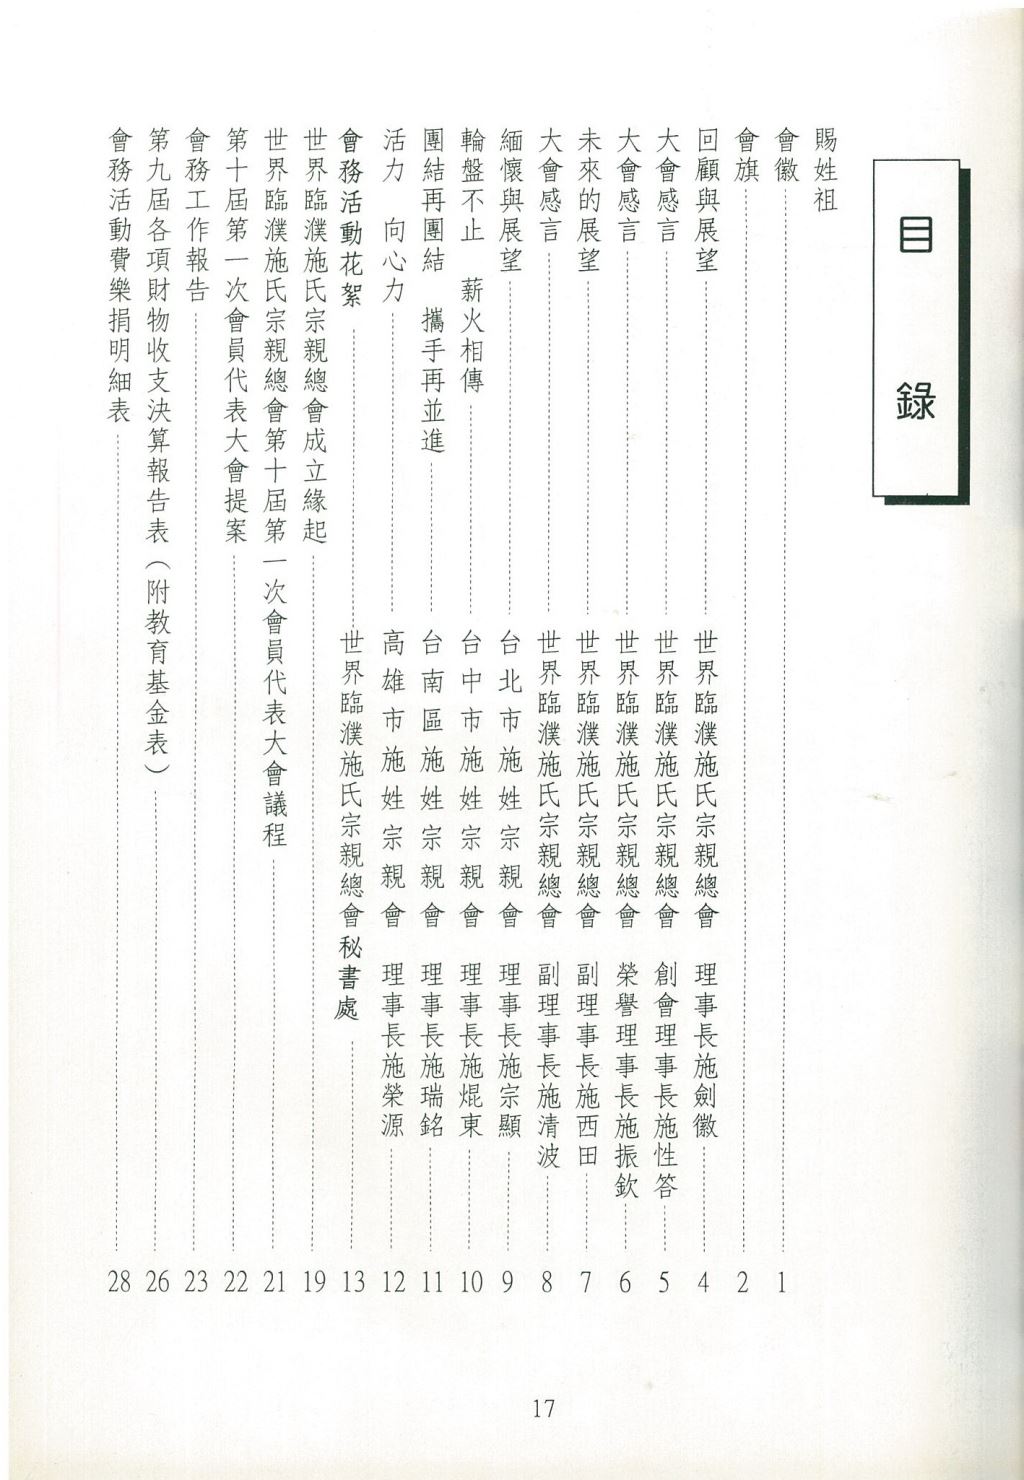 目錄
賜姓祖
會徽 1
會旗 2
回顧與展望 世界臨濮施氏宗親總會 理事長施劍徽 4
大會感言 世界臨濮施氏宗親總會 創會理事長施性答 5
大會感言 世界臨濮施氏宗親總會 榮譽理事長施振欽 6
未來的展望 世界臨濮施氏宗親總會 副理事長施西田 7
大會感言 世界臨濮施氏宗親總會 副理事長施清波 8
緬懷與展望 台北市施姓宗親會 理事長施宗顯 9
輪盤不止 薪火相傳 台中市施姓宗親會 理事長施焜東 10
團結再團結 攜手再並進 台南區施姓宗親會 理事長施瑞銘 11
活力 向心力 高雄市施姓宗親會 理事長施榮源 12
會務活動花絮 世界臨濮施氏宗親總會秘書處 13
世界臨濮施氏宗親總會成立緣起 19
世界臨濮施氏宗親總會第十屆第一次會員代表大會議程 21
第十屆第一次會員代表大會提案 22
會務工作報告 23
第九屆各項財物收支決算報告表（附教育基金表） 26
會務活動費樂捐明細表 28
17